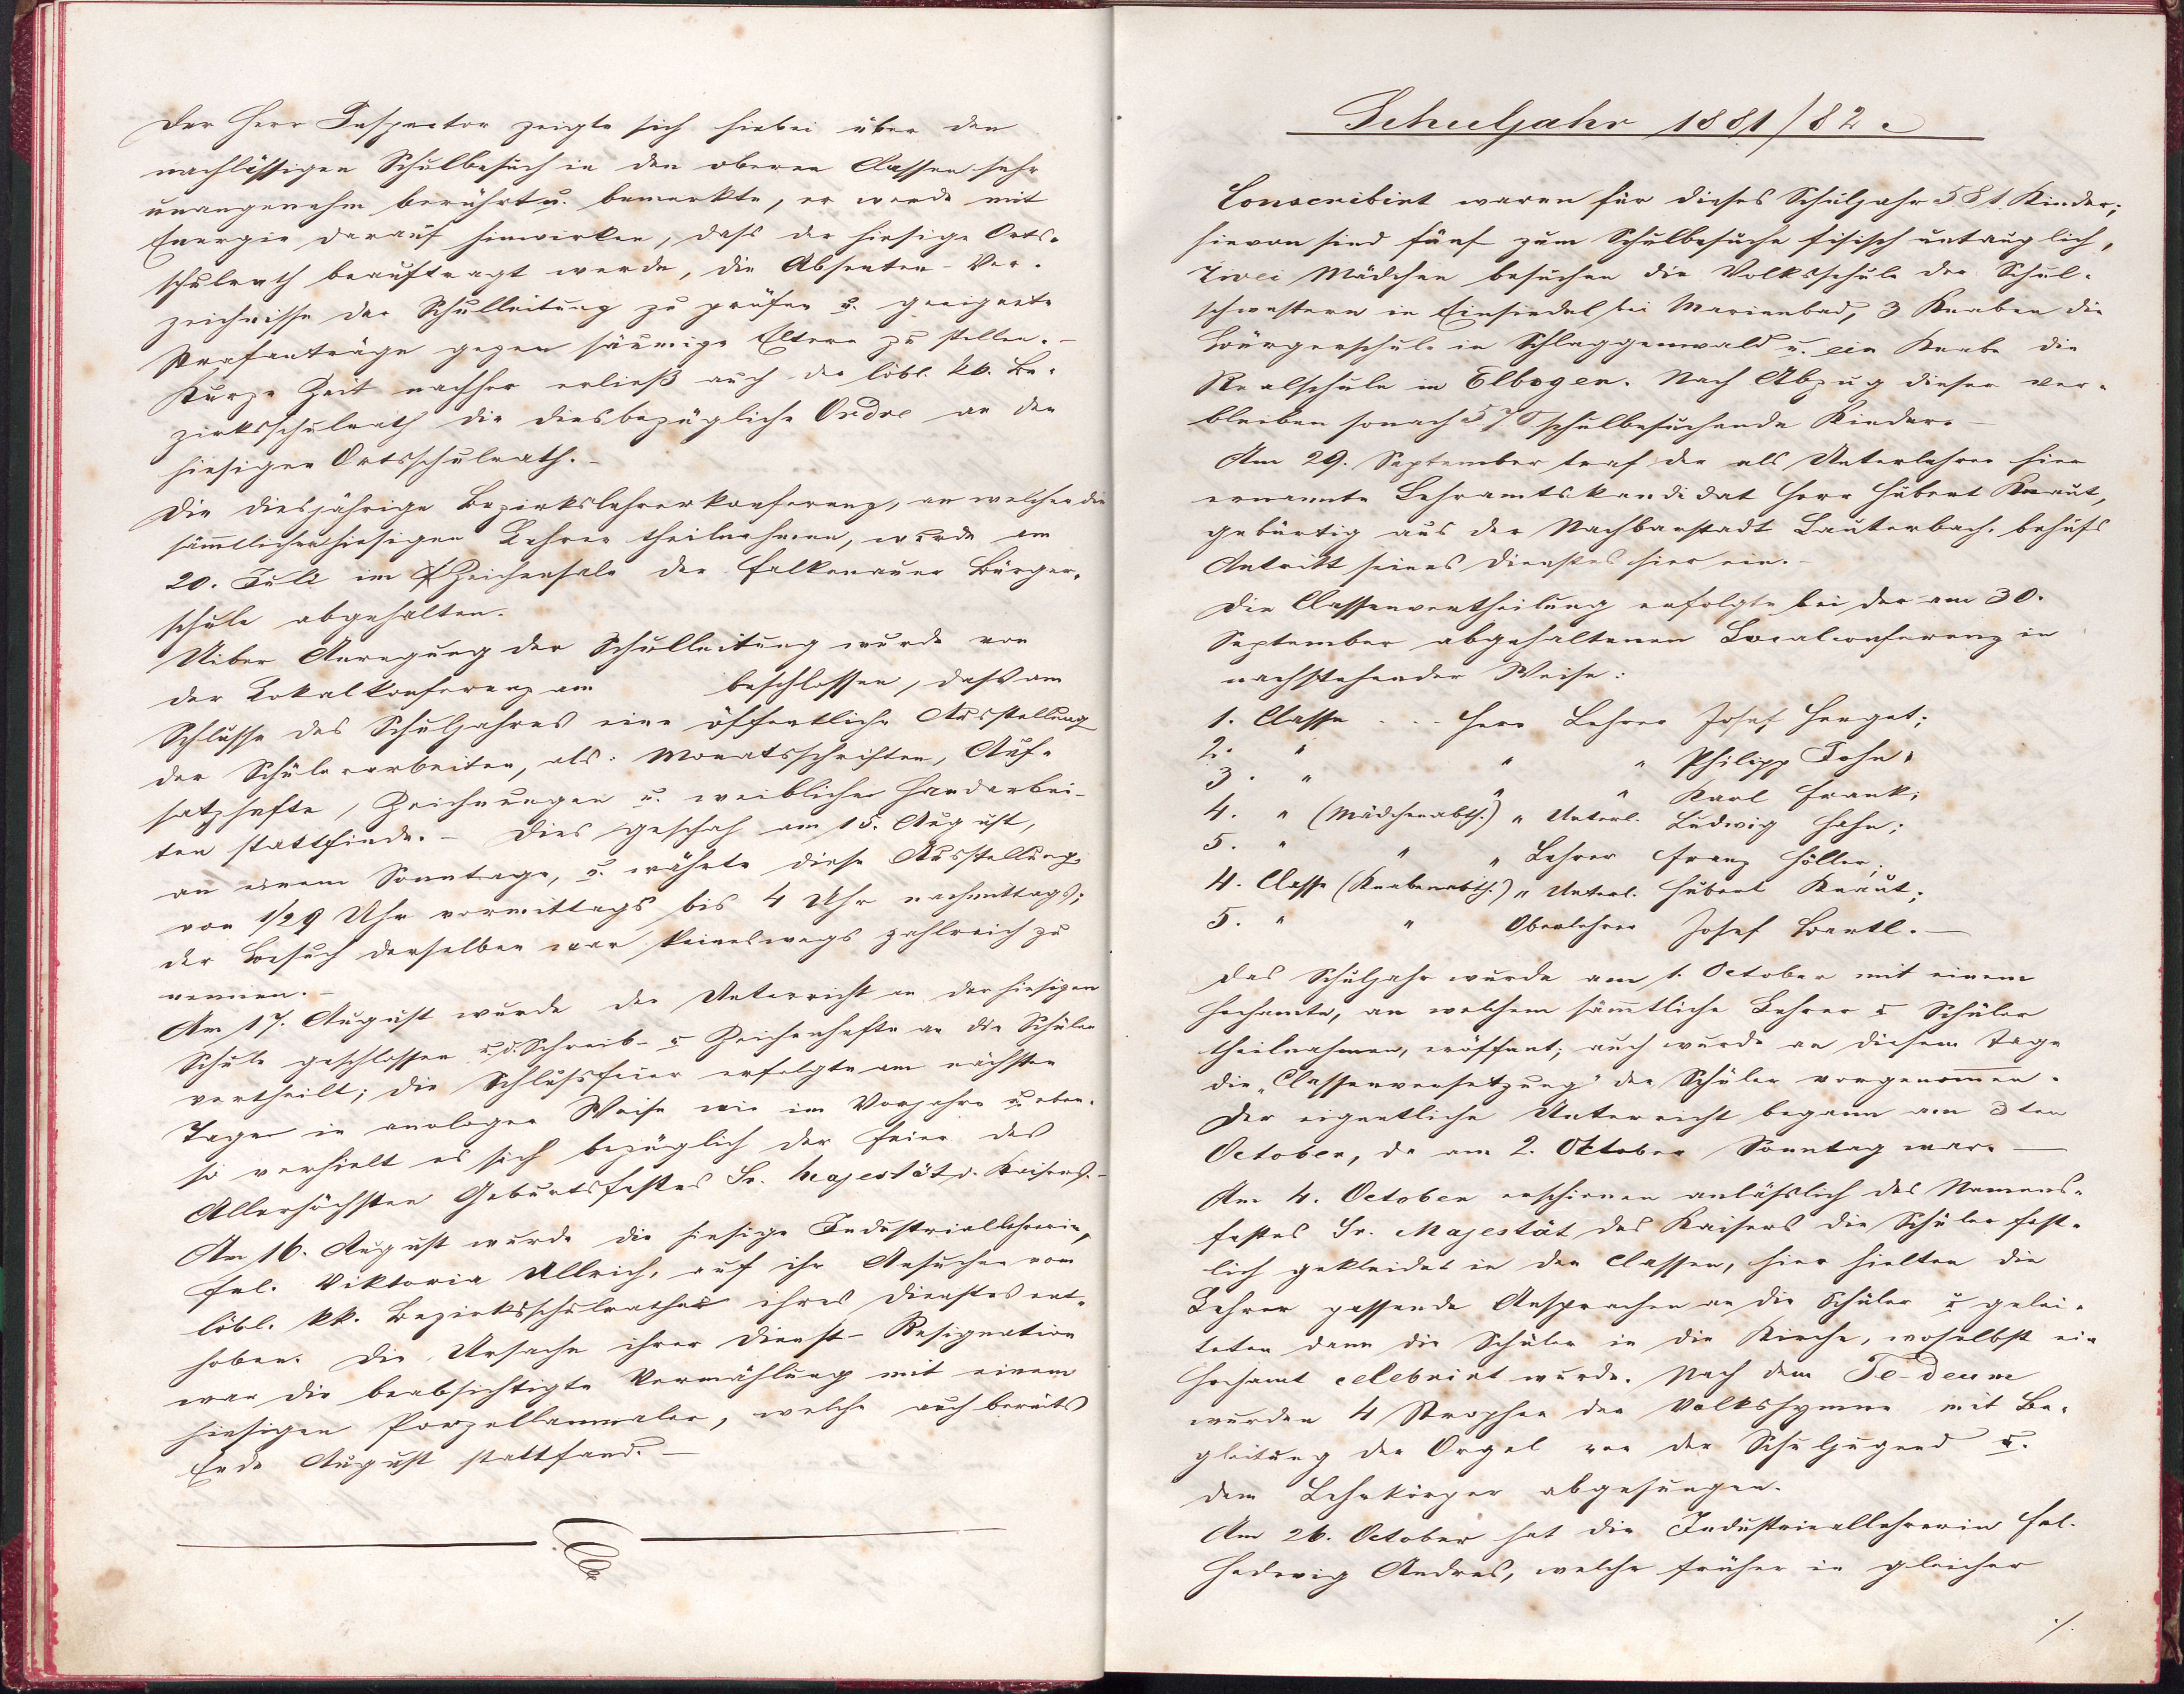 Der Herr Inspector zeigte sich hiebei über den
nachlässigen Schulbesuch in den oberen Classen sehr
unangenehm berührt u. bemerkte, er werde mit
Energie darauf hinwirken, dass der hiesige Orts-
schulrath beauftragt werde, die Absenten-Ver-
zeichnisse der Schulleitung zu prüfen u. geeignete
Strafanträge gegen säumige Eltern zu stellen.-
Kurze Zeit nachher erließ auch der löbl. kk. Be-
zirksschulrath die diesbezügliche Ordre an den
hiesigen Ortsschulrath.-
Die diesjährige Bezirkslehrerkonferenz, an welcher die
sämmtlichen hiesigen Lehrer theilnahmen, wurde am
20. Juli im Zeichensale der Falkenauer Bürger-
schule abgehalten.
Uiber Anregung der Schulleitung wurde von
der Lokalkonferenz am beschlossen, dass am
Schlusse des Schuljahres eine öffentliche Ausstellung
der Schülerarbeiten, als: Monatsschriften, Auf-
satzhefte, Zeichnungen u. weibliche Handarbei-
ten stattfinde.- Dies geschah am 15. August,
an einem Sonntage, u. währte diese Ausstellung
von 1/2 9 Uhr vormittags bis 4 Uhr nachmittags;
der Besuch derselben war keineswegs zahlreich zu
nennen.-
Am 17. August wurde der Unterricht an der hiesigen
Schule geschlossen u. d. Schreib- u Zeichenhefte an die Schüler
vertheilt; die Schlussfeier erfolgte am nächsten
Tage in analoger Weise wie im Vorjahre u. eben-
so verhielt es sich bezüglich der Feier des
Allerhöchsten Geburtsfestes Sr. Majestät d. Kaisers.-
Am 16. August wurde die hiesige Industriallehrerin,
Frl. Viktoria Ullrich, auf ihr Ansuchen vom
löbl. kk. Bezirksschulrathe ihres Dienstes ent-
hoben. Die Ursache ihrer Dienst-Resignation
war die beabsichtigte Vermählung mit einem
hiesigen Porzellanmaler, welche auch bereits
Ende August stattfand.-
Schuljahr 1881/82.
Conscribirt waren für dieses Schuljahr 581 Kinder;
hievon sind fünf zum Schulbesuche fisisch untauglich,
Zwei Mädchen besuchen die Volksschule der Schul-
schwestern in Einsiedel bei Marienbad, 3 Knaben die
Bürgerschule in Schlaggenwald u. ein Knabe die
Realschule in Elbogen. Nach Abzug dieser ver-
bleiben sonach 570 schulbesuchende Kinder.-
Am 29. September traf der als Unterlehrer hier
ernannte Lehramtskandidat Herr Hubert Kraut,
gebürtig aus der Nachbarstadt Lauterbach, behufs
Antritt seines Dienstes hier ein.-
Die Classenvertheilung erfolgte bei der am 30.
September abgehaltenen Localconferenz in
nachstehender Weise:
1. Classe . . . Herr Lehrer Josef Herget;
2. " " " Philipp John;
3. " " " Karl Frank;
4. " (Mädchenabth.) " Unterl. Ludwig Hahn;
5. " " " Lehrer Franz Höller;
4. Classe (Knabenabth.) " Unterl. Hubert Kraut;
5. " " Oberlehrer Josef Bartl.-
Das Schuljahr wurde am 1. October mit einem
Hochamte, an welchem sämmtliche Lehrer u Schüler
theilnahmen, eröffnet; auch wurde an diesem Tage
die „Classenversetzung" der Schüler vorgenommen.
Der eigentliche Unterricht begann am 3ten
October, da am 2. Oktober Sonntag war.-
Am 4. October erschienen anlässlich des Namens-
festes Sr. Majestät des Kaisers die Schüler fest-
lich gekleidet in den Classen, hier hielten die
Lehrer passende Ansprachen an die Schüler u gelei-
teten dann die Schüler in die Kirche, woselbst ein
Hochamt celebrirt wurde. Nach dem Te-deum
wurden 4 Strophen der Volkshymne mit Be-
gleitung der Orgel von der Schuljugend u.
dem Lehrkörper abgesungen.
Am 26. October hat die Industriallehrerin Frl.
Hedwig Andres, welche früher in gleicher
./.